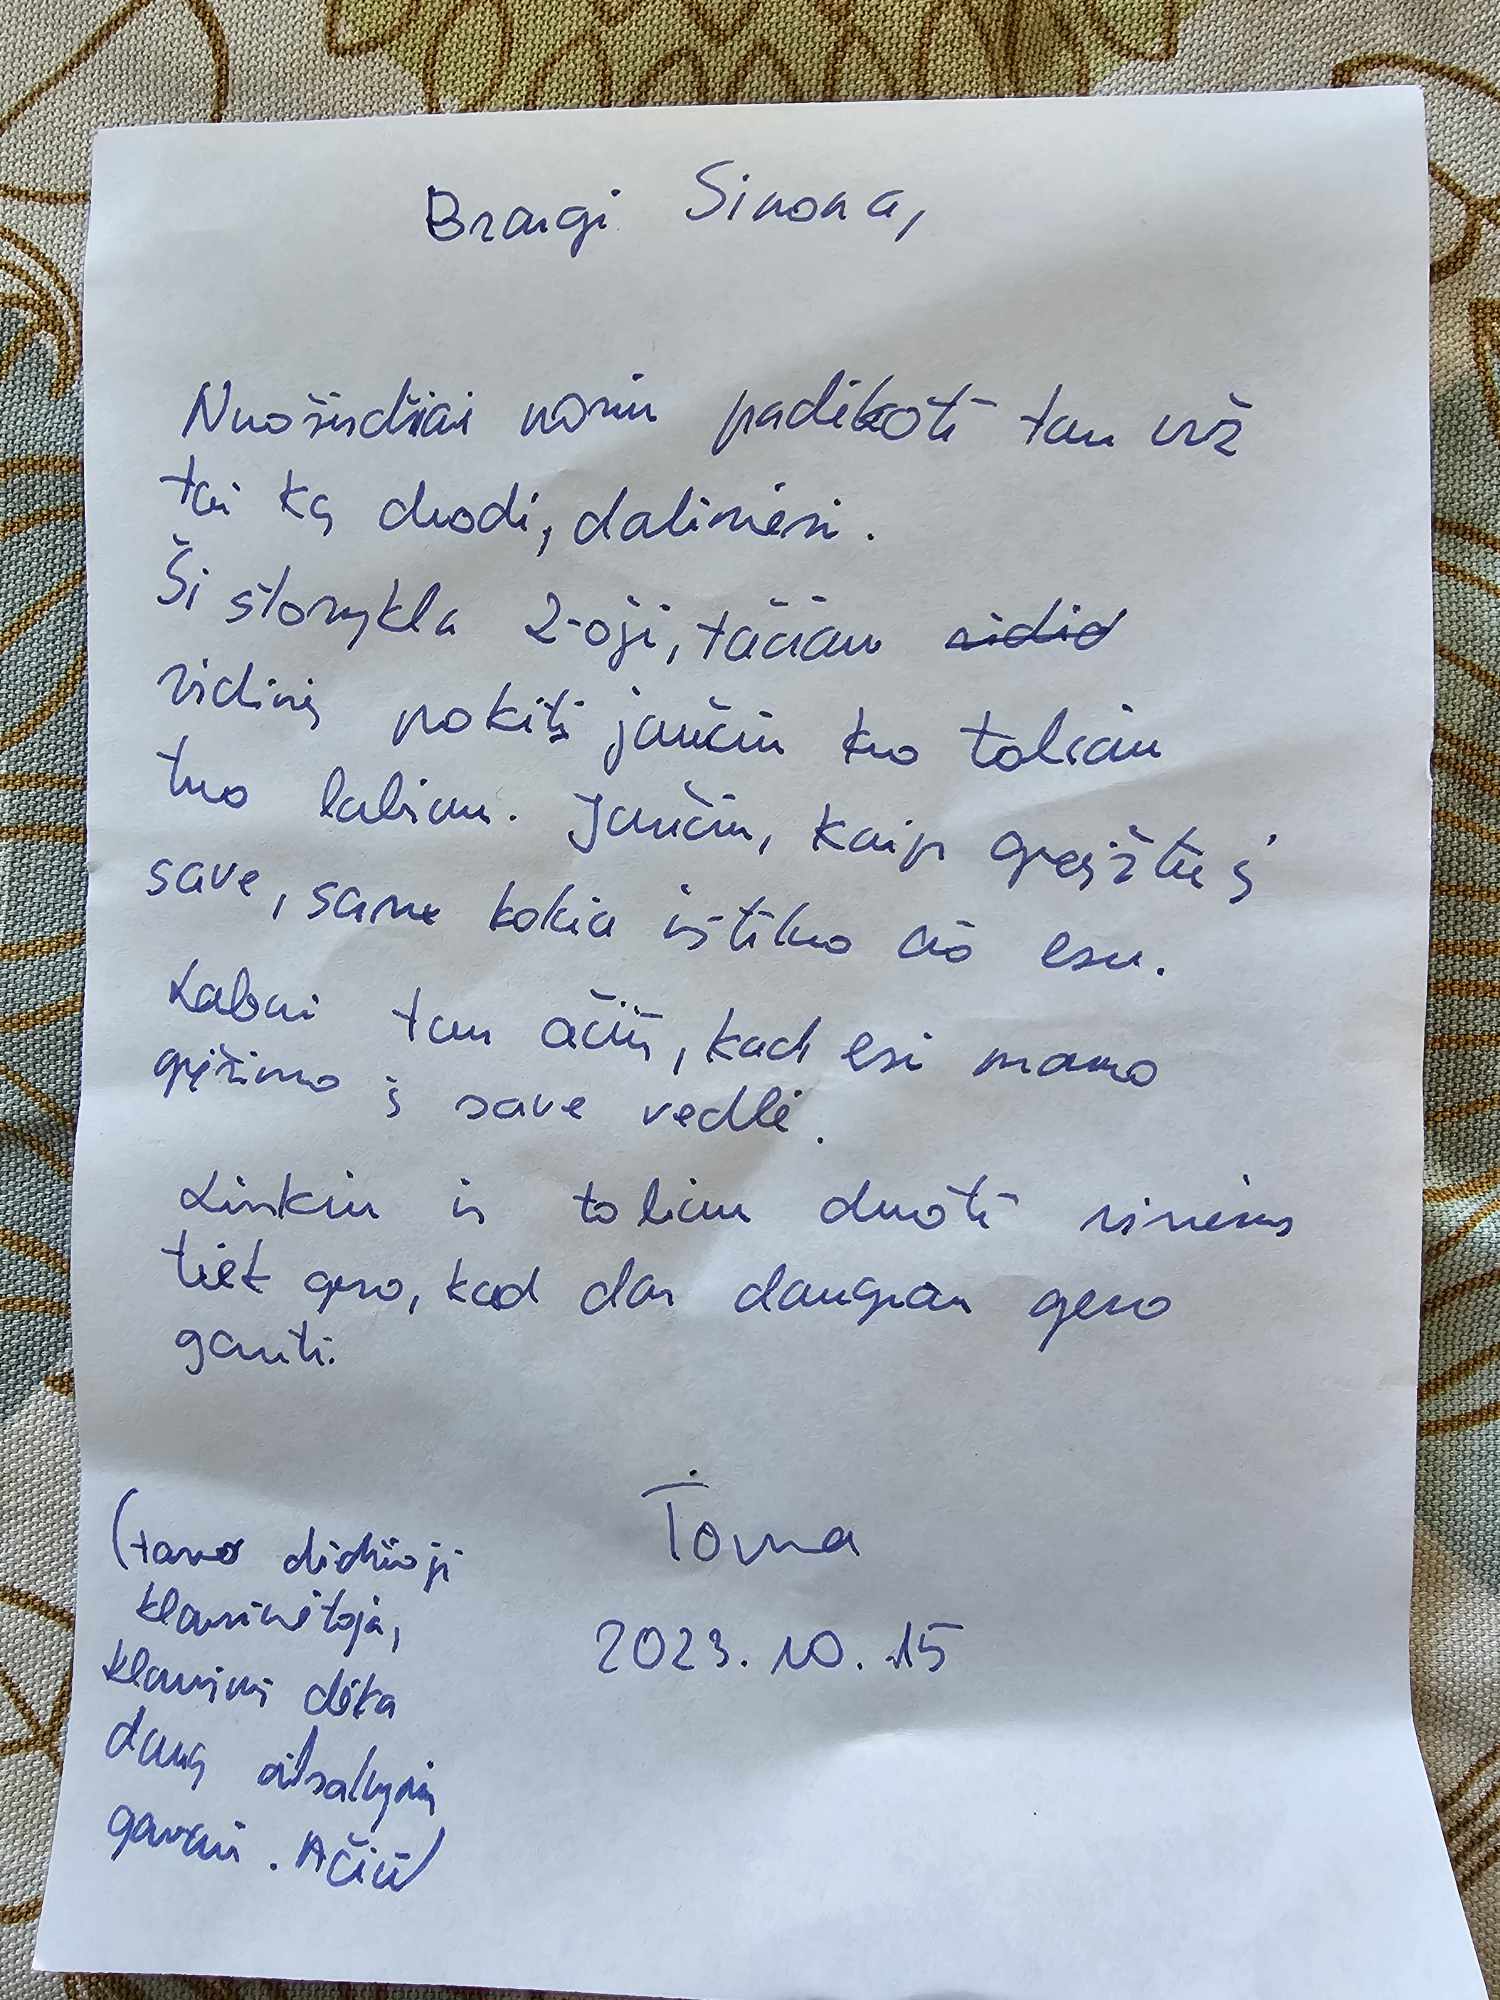 Brangi Simona,
Nuoširdžiai noriu padėkoti tau už
tai ką duodi, daliniesi.
Ši stovykla 2-oji, tačiau vidid
vidinį pokitį jaučiu kuo toliau
tuo labiau. Jaučiu, kaip gręįžtu į
save, save kokia iš tikro aš esu.
Labai tau ačiū, kad esi mano
gįžimo į save vedlė.
Linkiu ir toliau duoti visiems
tiek gero, kad dar daugiau gero
gauti.
Toma
2023.10.15
(tavo didžioji
klausinėtoja,
klausimų dėka
daug atsakymų
gavau. Ačiū)